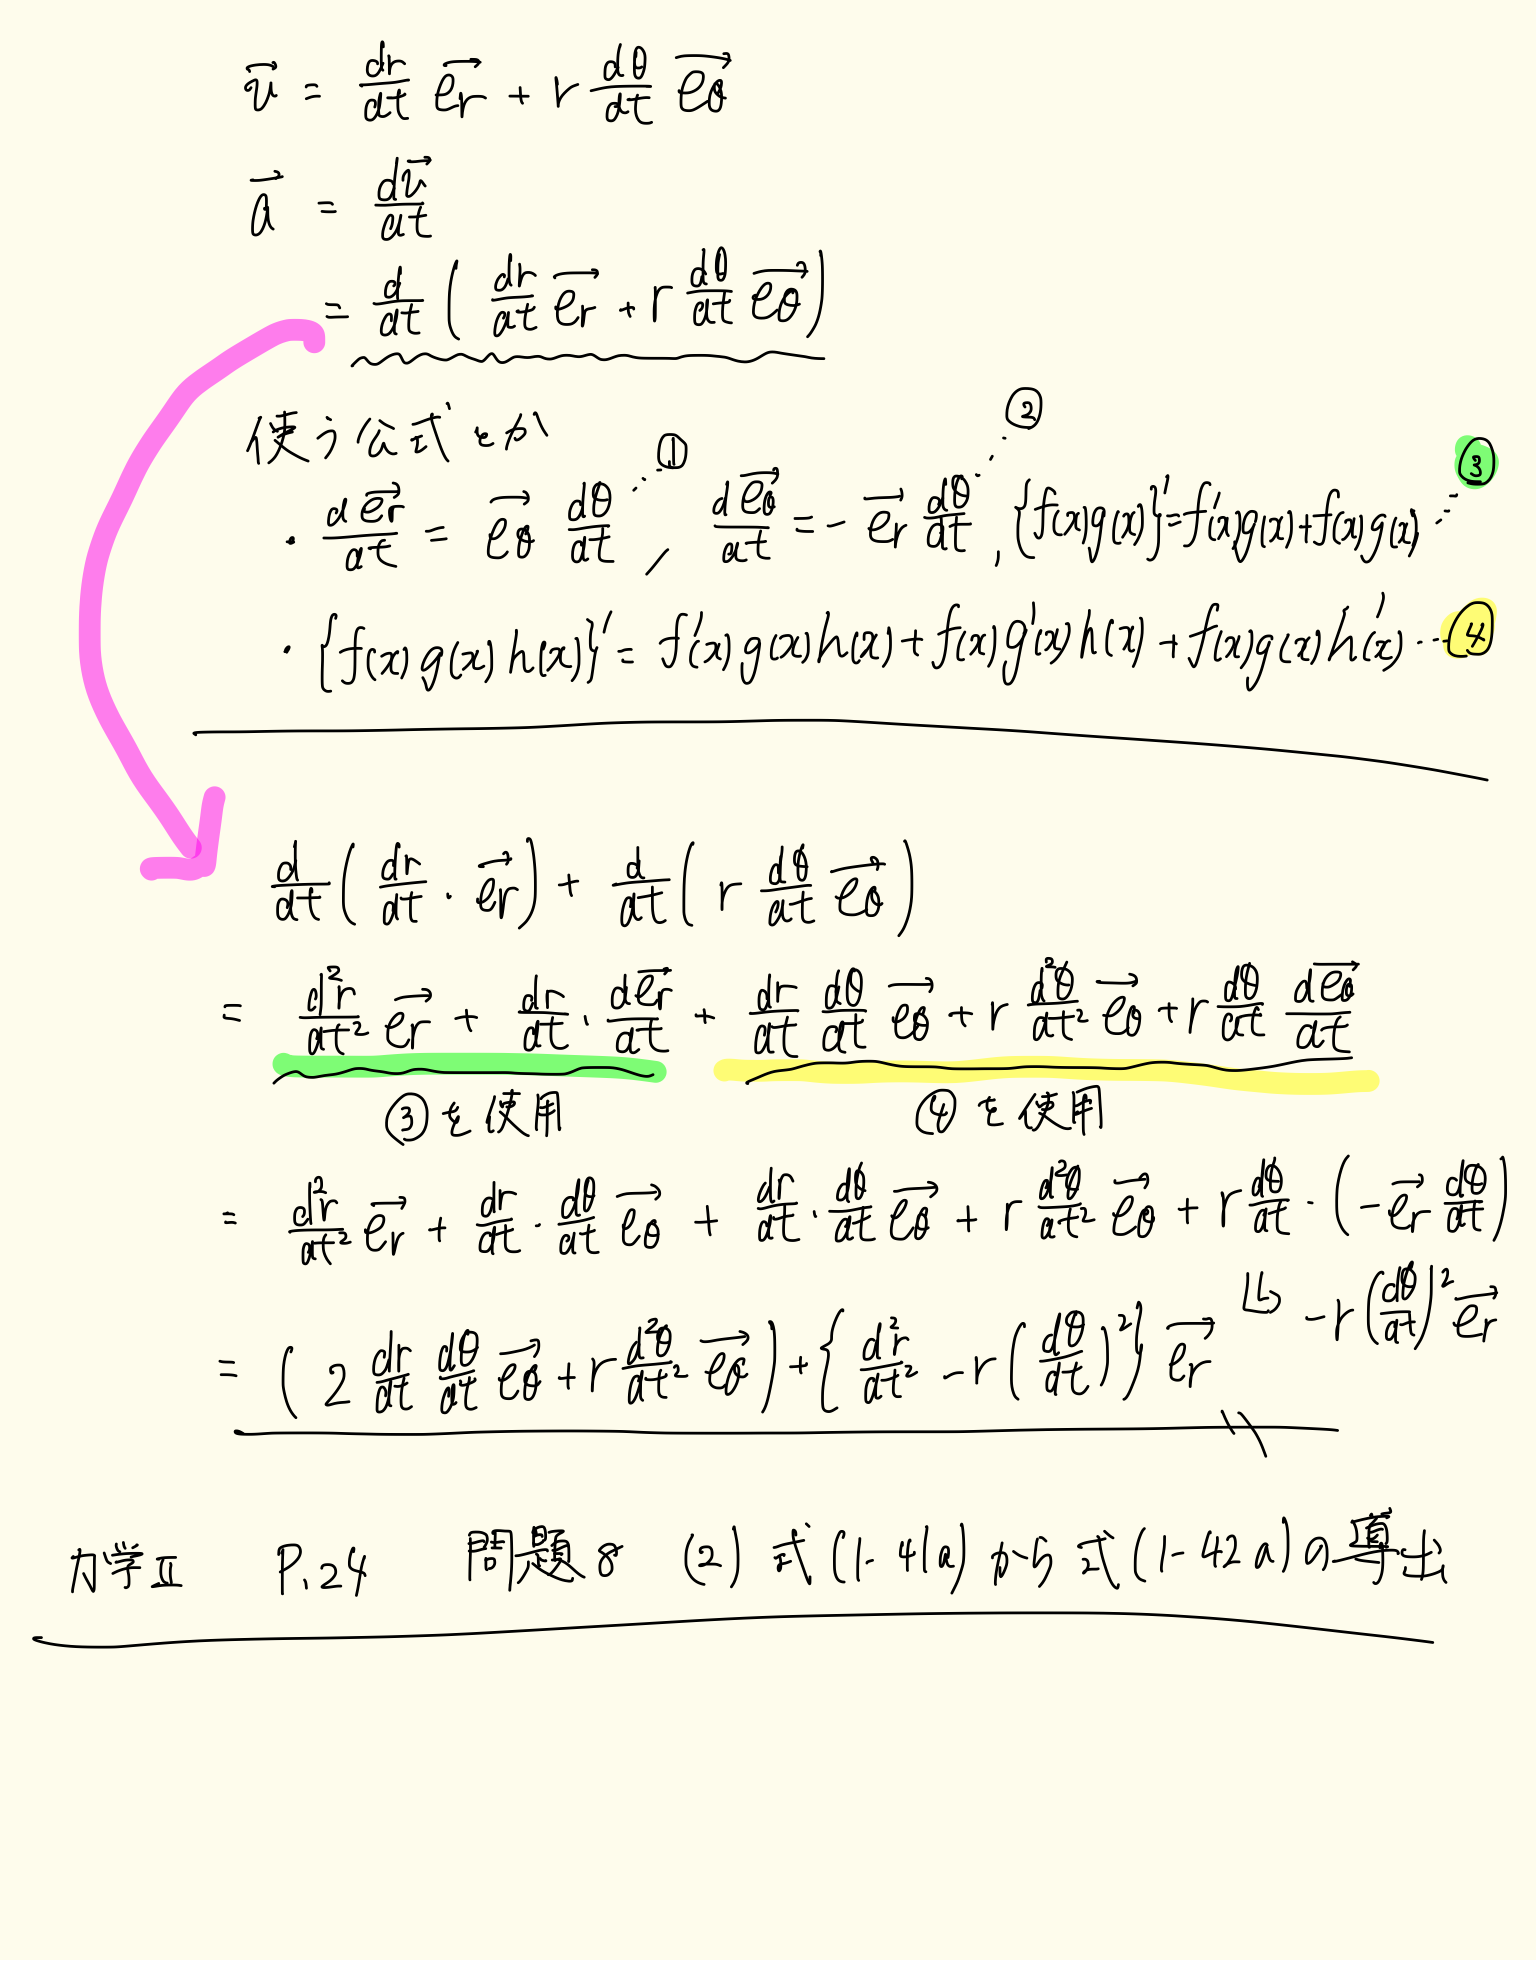 v⃗ = dr/dt e⃗r + r dθ/dt e⃗θ
a⃗ = dv⃗/dt
= d/dt ( dr/dt e⃗r + r dθ/dt e⃗θ )
使う公式とか
・ de⃗r/dt = e⃗θ dθ/dt …① , de⃗θ/dt = - e⃗r dθ/dt …② , {f(x)g(x)}' = f'(x)g(x)+f(x)g(x) …③
・ {f(x)g(x)h(x)}' = f'(x)g(x)h(x) + f(x)g'(x)h(x) + f(x)g(x)h'(x) …④
d/dt ( dr/dt · e⃗r ) + d/dt ( r dθ/dt e⃗θ )
= d²r/dt² e⃗r + dr/dt · de⃗r/dt + dr/dt dθ/dt e⃗θ + r d²θ/dt² e⃗θ + r dθ/dt de⃗θ/dt
③を使用 ④を使用
= d²r/dt² e⃗r + dr/dt · dθ/dt e⃗θ + dr/dt · dθ/dt e⃗θ + r d²θ/dt² e⃗θ + r dθ/dt · ( - e⃗r dθ/dt )
↳ - r (dθ/dt)² e⃗r
= ( 2 dr/dt dθ/dt e⃗θ + r d²θ/dt² e⃗θ ) + { d²r/dt² - r ( dθ/dt )² } e⃗r
力学Ⅱ P.24 問題8 (2) 式(1-41a)から式(1-42a)の導出